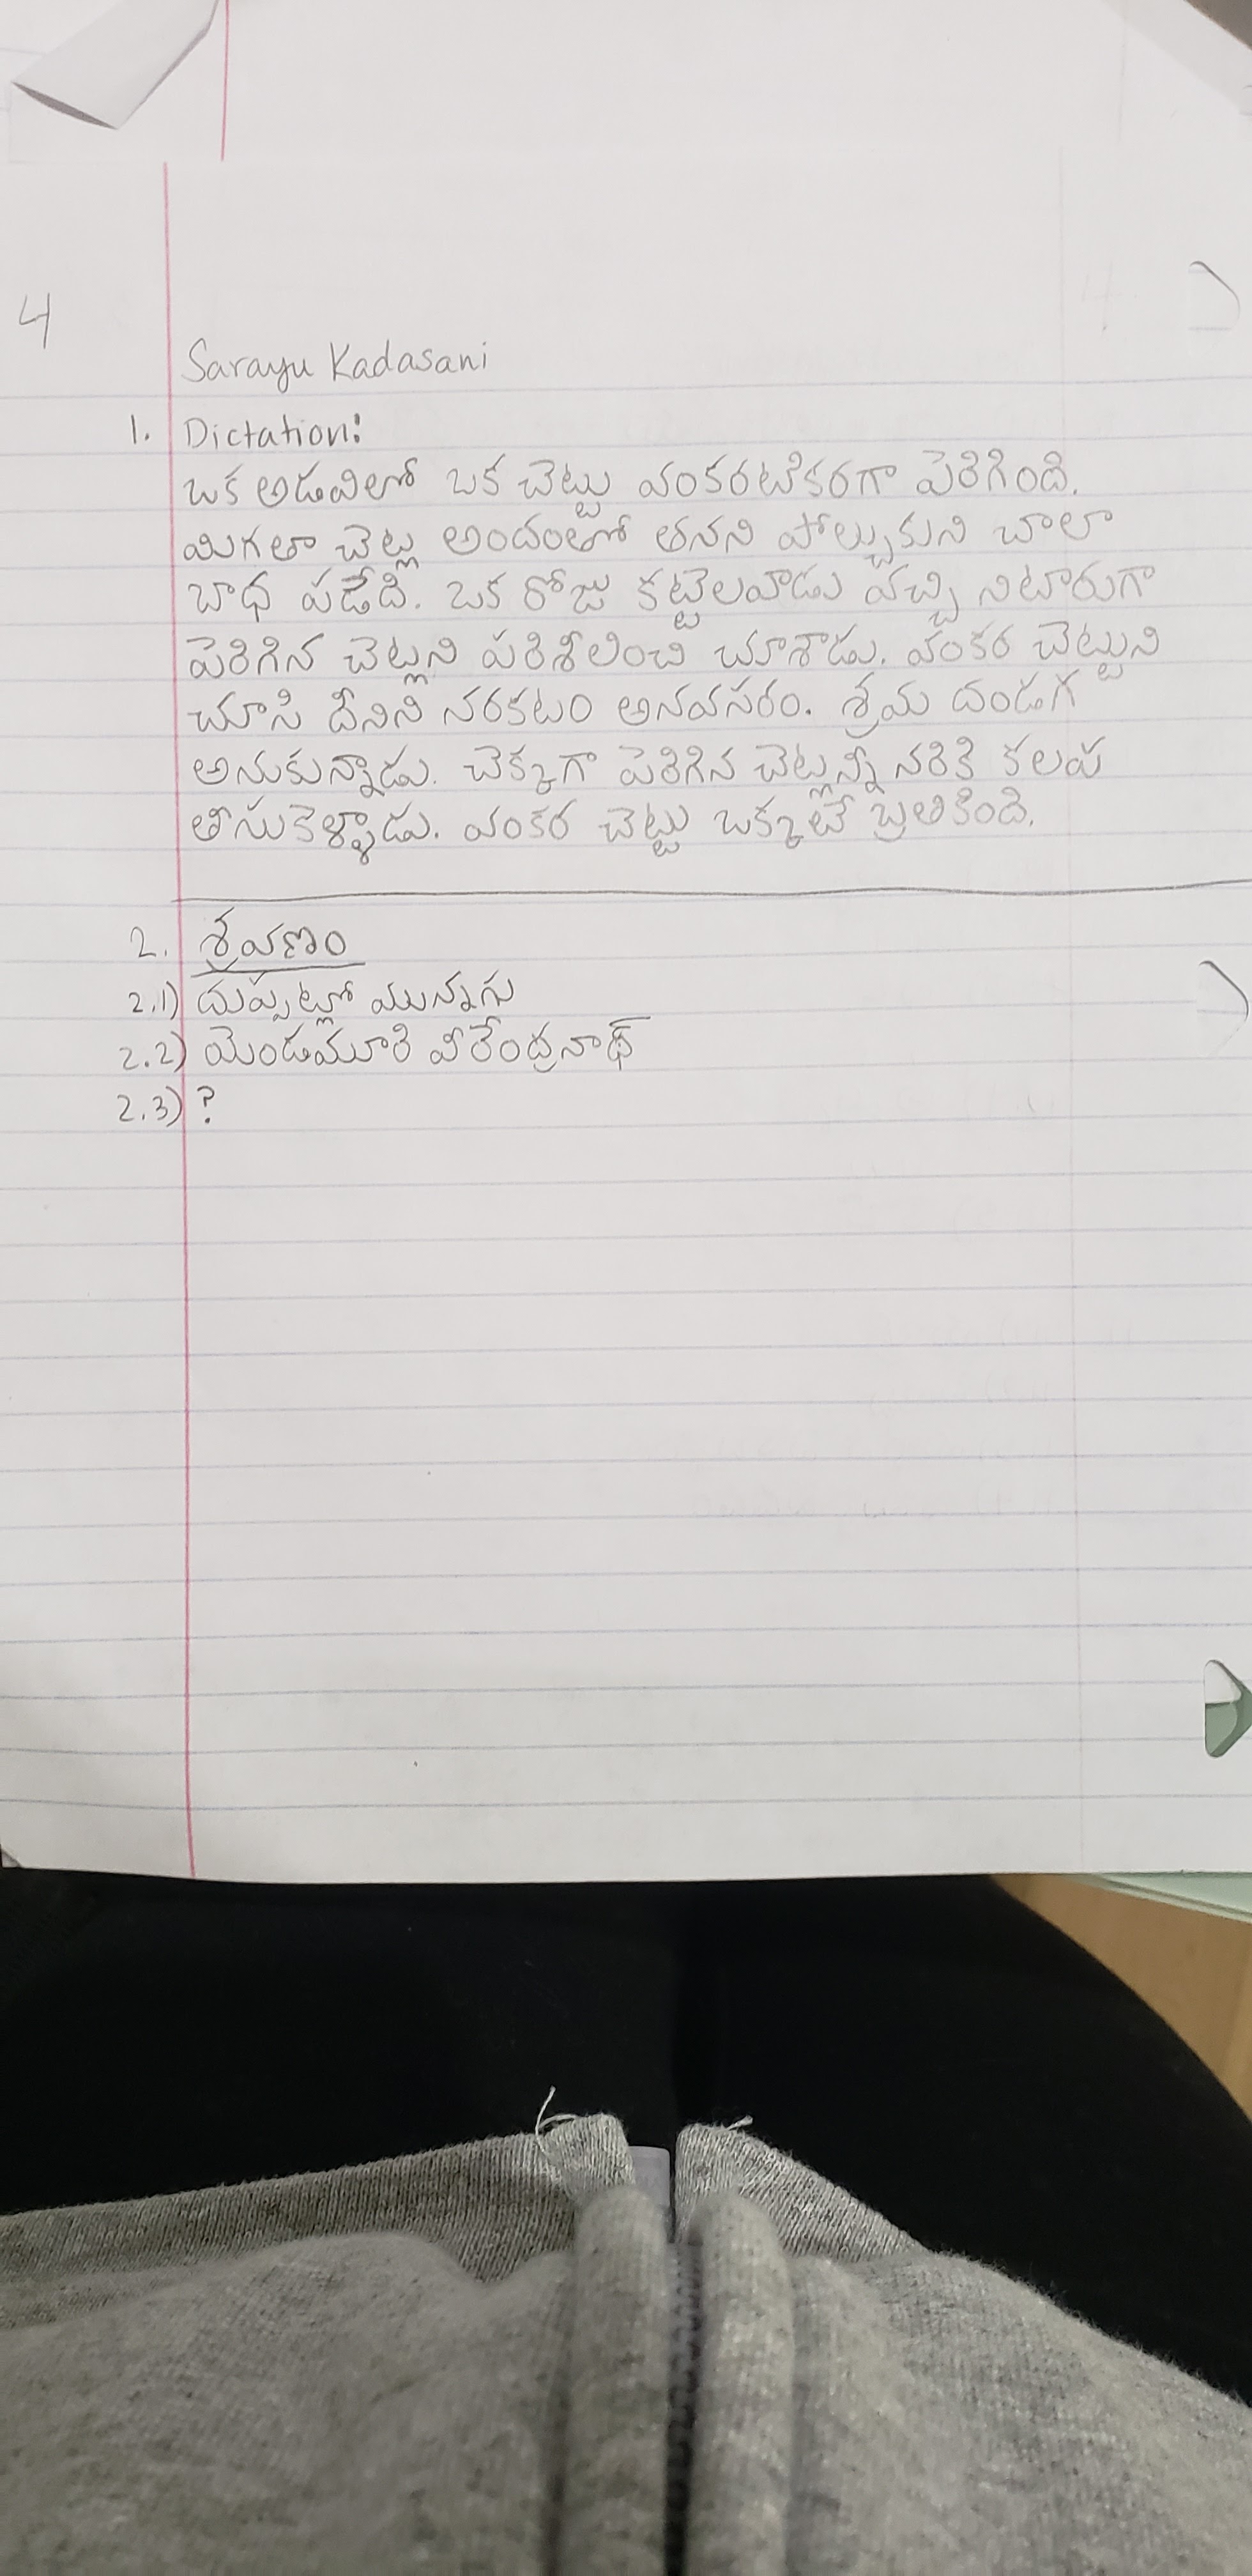 4
Sarayu Kadasani
1. Dictation:
ఒక అడవిలో ఒక చెట్టు వంకరటికరగా పెరిగింది.
మిగతా చెట్ల అందంతో తనని పోల్చుకుని చాలా
బాధ పడేది. ఒక రోజు కట్టెలవాడు వచ్చి నిటారుగా
పెరిగిన చెట్లని పరిశీలించి చూశాడు. వంకర చెట్టుని
చూసి దీనిని నరకటం అనవసరం. శ్రమ దండగ
అనుకున్నాడు. చెక్కగా పెరిగిన చెట్లన్నీ నరికి కలప
తీసుకెళ్ళాడు. వంకర చెట్టు ఒక్కటే బ్రతికింది.
2. శ్రవణం
2.1) దుప్పట్లో మున్నగు
2.2) యెండమూరి వీరేంద్రనాథ్
2.3) ?